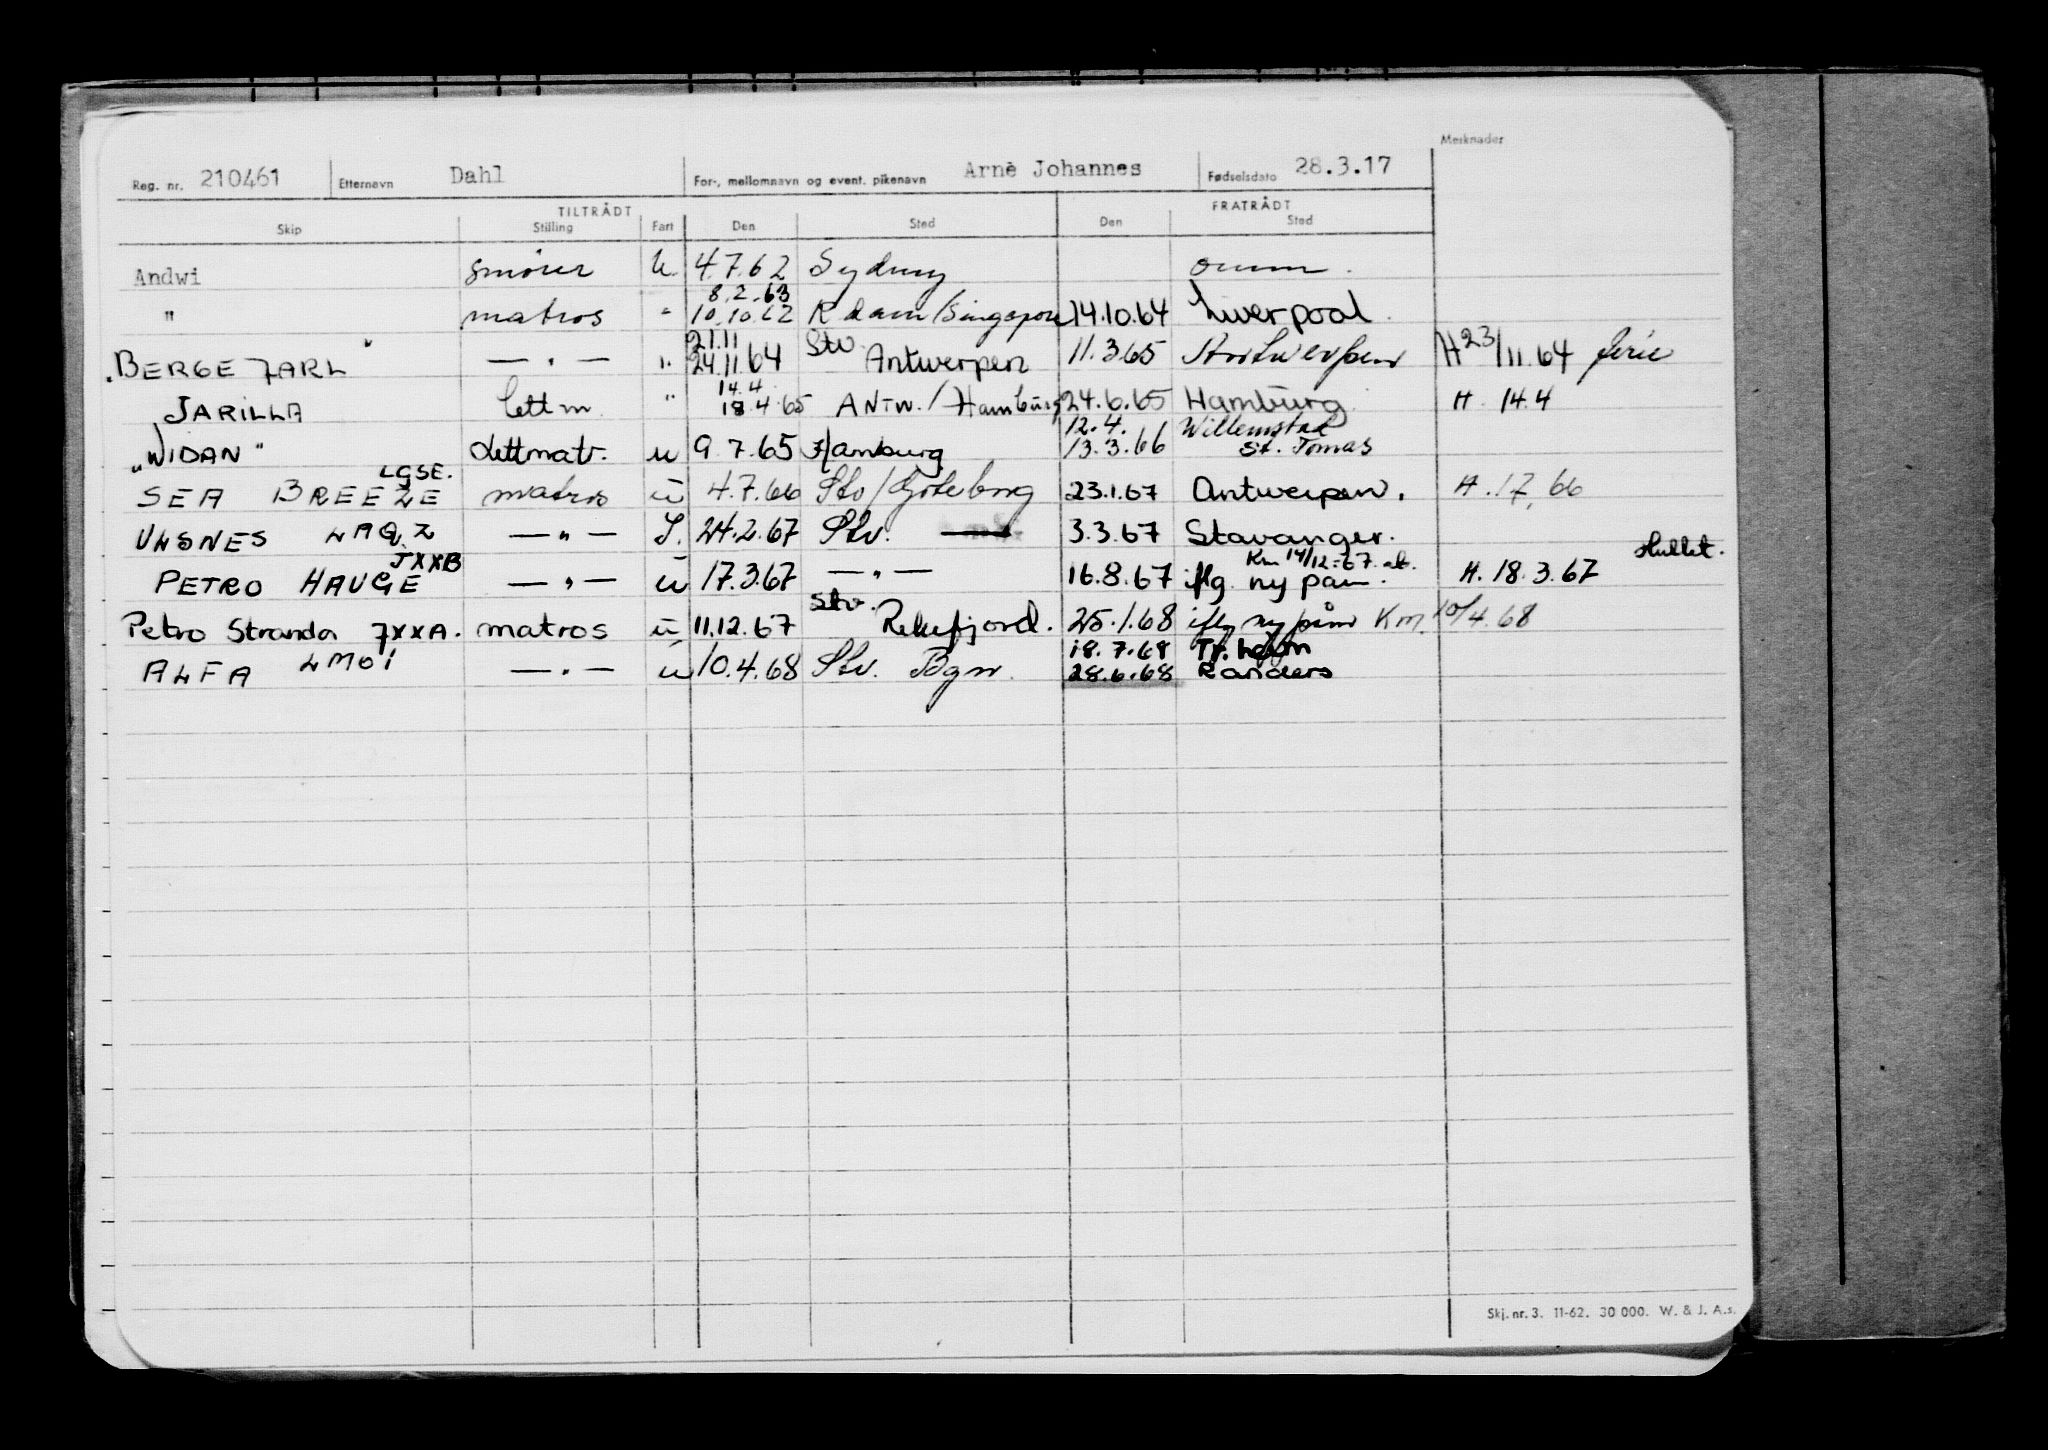 Merknader
Reg. nr. 210461 Etternavn Dahl For-, mellomnavn og event. pikenavn Arne Johannes Fødselsdato 28.3.17
TILTRÅDT FRATRÅDT
Skip Stilling Fart Den Sted Den Sted
Andwi smører u. 4.7.62 Sydney omm.
8.2.63
" matros " 10.10.62 R dam/Singapore 14.10.64 Liverpool.
21.11 Stv.
"BERGE JARL" — " — " 24.11.64 Antwerpen 11.3.65 Antwerpen H 23/11.64 ferie
14.4
JARILLA lettm. " 18.4.65 ANTW./Hamburg 24.6.65 Hamburg H. 14.4
12.4. Willemstad
"WIDAN" Lettmatr. u 9.7.65 Hamburg 13.3.66 St. Tomas
LGSE.
SEA BREEZE matros u 4.7.66 Stv/Göteborg 23.1.67 Antwerpen. H. 1.7.66
VLSNES LAQZ — " — I. 24.2.67 Stv. 3.3.67 Stavanger.
JXXB Km 14/12-67 at. sluttet.
PETRO HAUGE — " — u 17.3.67 — " — 16.8.67 iflg. ny pam. H. 18.3.67
Stv.
Petro Stranda JXXA. matros u 11.12.67 Rekefjord. 25.1.68 iflg ny påm Km. 10/4.68
18.7.68 Tr.heim
ALFA LMOI — " — u 10.4.68 Stv. Bgn. 28.6.68 Randers
Skj. nr. 3. 11-62. 30 000. W. & J. A.s.